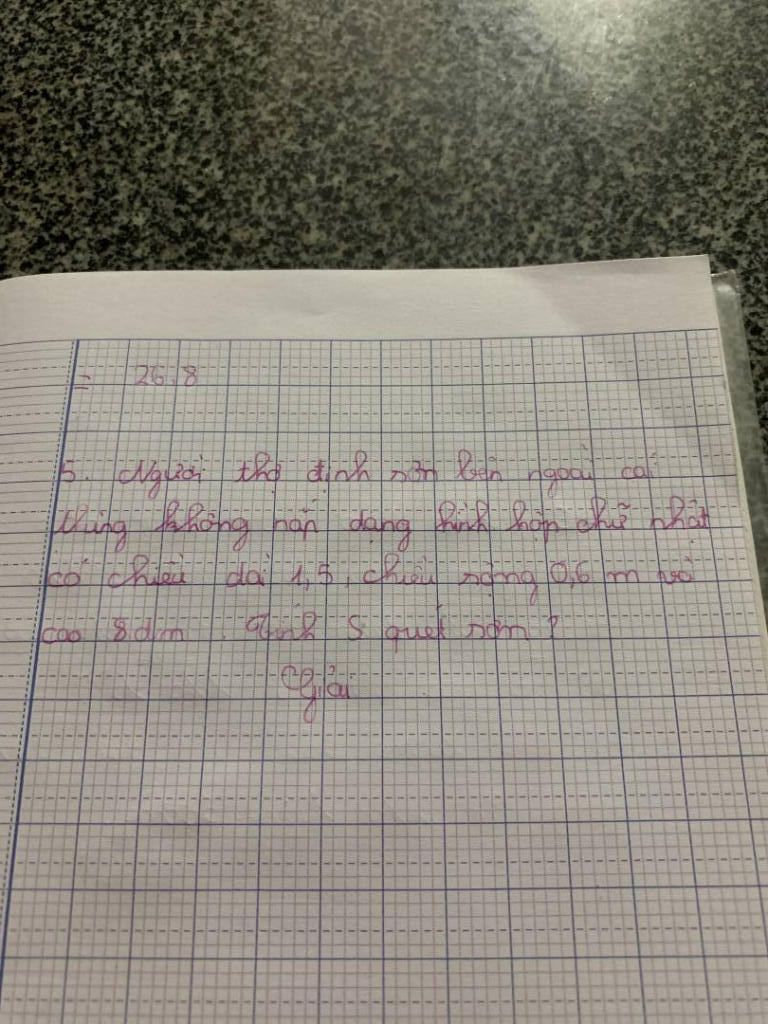 = 26,8
5. Người thợ định sơn bên ngoài cái
thùng không nắp dạng hình hộp chữ nhật
có chiều dài 1,5, chiều rộng 0,6 m và
cao 8dm. Tính S quét sơn?
Giải